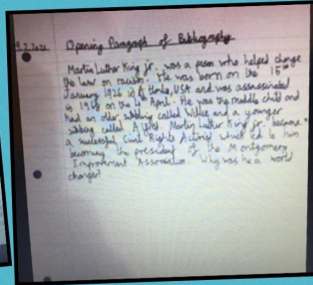 9.2.2021 Opening Paragraph of Bibliography
Martin Luther King jr. was a person who helped change
the law on racism. He was born on the 15th of
January 1926 in Atlanta, USA and was assassinated
in 1968 on the 4th April. He was the middle child and
had an older sibling called Willie and a younger
sibling called Alfred. Martin Luther King jr. became
a successful Civil Rights Activist which led to him
becoming the president of the Montgomery
Improvement Association. Why was he a world
changer?